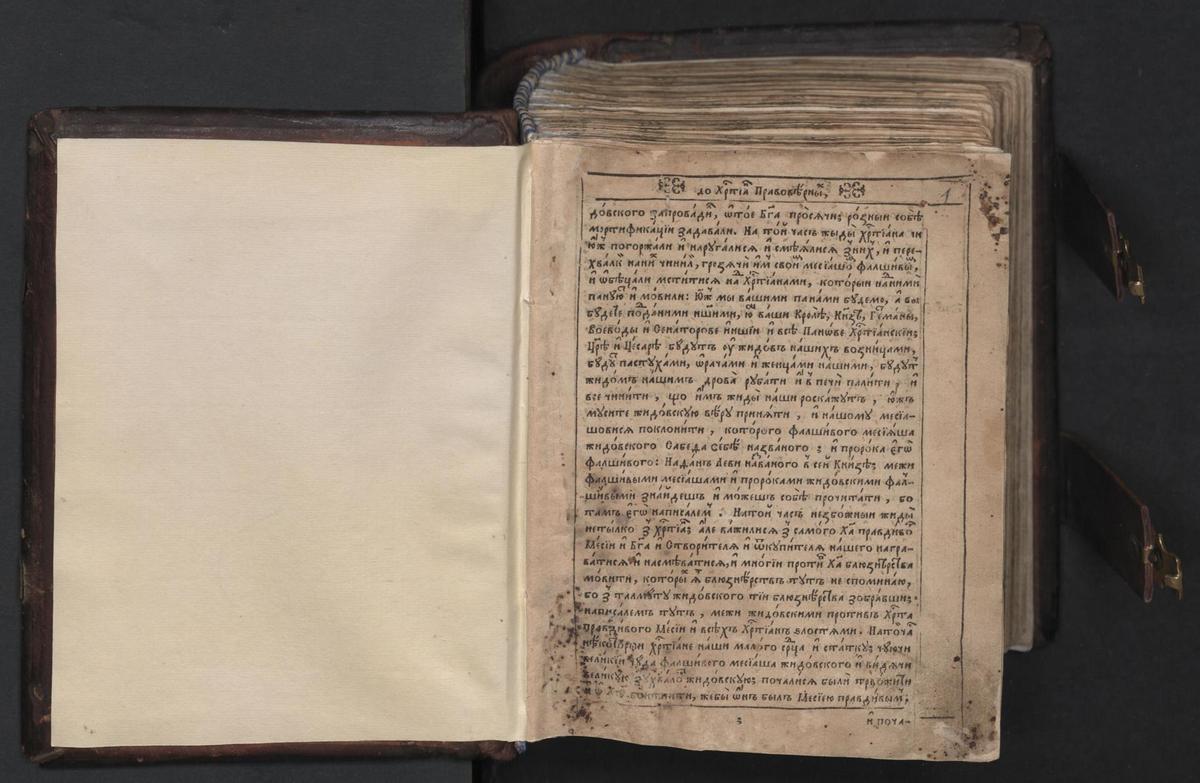 до Хр҃тїа̑ Правовѣ́рны̑,
1
до́вского запрова́ди̑, ѿто́е Бг҃а про́сячи; ро́зныи собѣ̀
мортифика́цїи задава́ли. На то́й часъ жыды̀ хр҃тїа́на чи
ю́ж погоржа́ли и҆ наруга́лися и҆ смѣя́лися з̾ни́х, и҆ пере-
хва́лки на ни́х чини́ли, грозячѝ и҆́м свои̑м месїа́шо̑ фалши́вы̑,
и҆ ѡ҆бѣца́ли мсти́тися на̑ Хр҃тїа́нами, кото́рыи на̑ ни́ми
пану́ю̑ и҆ мо́вили: Ю́ж мы̀ ва́шими пана́ми бу́демо, а҆ вы̀
бу́дете по́даными на́шими, ва́ши Кро́лѣ, Кнзѣ̀, Ге́тманы,
Воево́ды и҆ Сена́торове и҆ньшїи и҆ всѣ̀ Пано́ве Хр҃тїа́нскїи;
Цр҃ѣ и҆ Це́сарѣ бу́дутъ оу҆ жидо́въ на́шихъ возни́цами,
бу́ду̑ пастуха́ми, ѡ҆рача́ми и҆ женца́ми на́шими, бу́дут
жидо́мъ на́шимъ дрова̀ руба́ти и҆ в̾ печѝ пали́ти, и҆
все чини́ти, що и҆́мъ жиды̀ на́ши роска́жутъ, ю́жъ
му́сите жидо́вскую вѣ́ру приня́ти, и҆ на́шому месїа́-
шовися поклони́ти, кото́рого фалши́вого месїа́ша
жидо́вского Сабе́ѳа се́бѣ̀ на́званого; и҆ проро́ка є҆гѡ̀
фалши́вого: На́данъ Леви на̑ваного в̾ се́й Кни́зѣ; межи
фалши́выми месїа́шами и҆ проро́ками жидо́вскими фал-
ши́выми зна́йдешъ и҆ мо́жешъ собѣ̀ прочита́ти, бо
та́мъ є҆гѡ̀ написа́лем. На то́й часъ незбо́жныи жиды̀
нетылко з̾ хр҃тїа̑; а҆́ле ва́жилися з̾ само́го Ха̑ правди́во̑
Месїи и҆ Бг҃а и҆ Створи́теля и҆ ѿкупи́теля на́шего награ-
ва́тися и҆ насмѣва́тися, и҆ мно́гїи проти̑ Ха̑ блюзнѣ́рства
мо́вити, кото́ры̑ я҆̀ блюзнѣ́рствъ ту́тъ не спомина́ю,
бо з̾ талму́ту жидо́вского тїи блюзнѣ́рства зобра́вши;
написа́лемъ ту́тъ, межи жидо́вскими проти́въ Хр҃та
правди́вого Месїи и҆ всѣ́хъ Хр҃тїа́нъ ѕло́стями. На то́й ча̑
нѣ́которїи хр҃тїа́не на́ши мало́го ср҃ца и҆ статку; чу́ючи
вели́кїи чу́да фалши́вого месїа́ша жидо́вского и҆ ви́дячи
вели́кую з̾ухва́ло̑ жидо́вскую; поча́лися былѝ трво́жити
и҆ ѡ҆ Хр҃тѣ̀ вонтпи́ти, же́бы ѡ҆́нъ бы́лъ Месїею правди́вым;
и҆ поча-